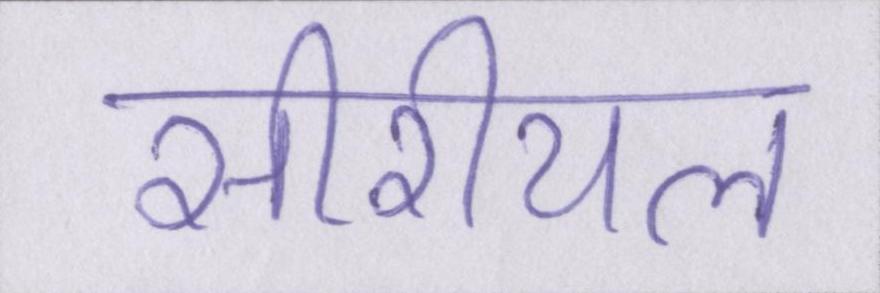 सीरीयल